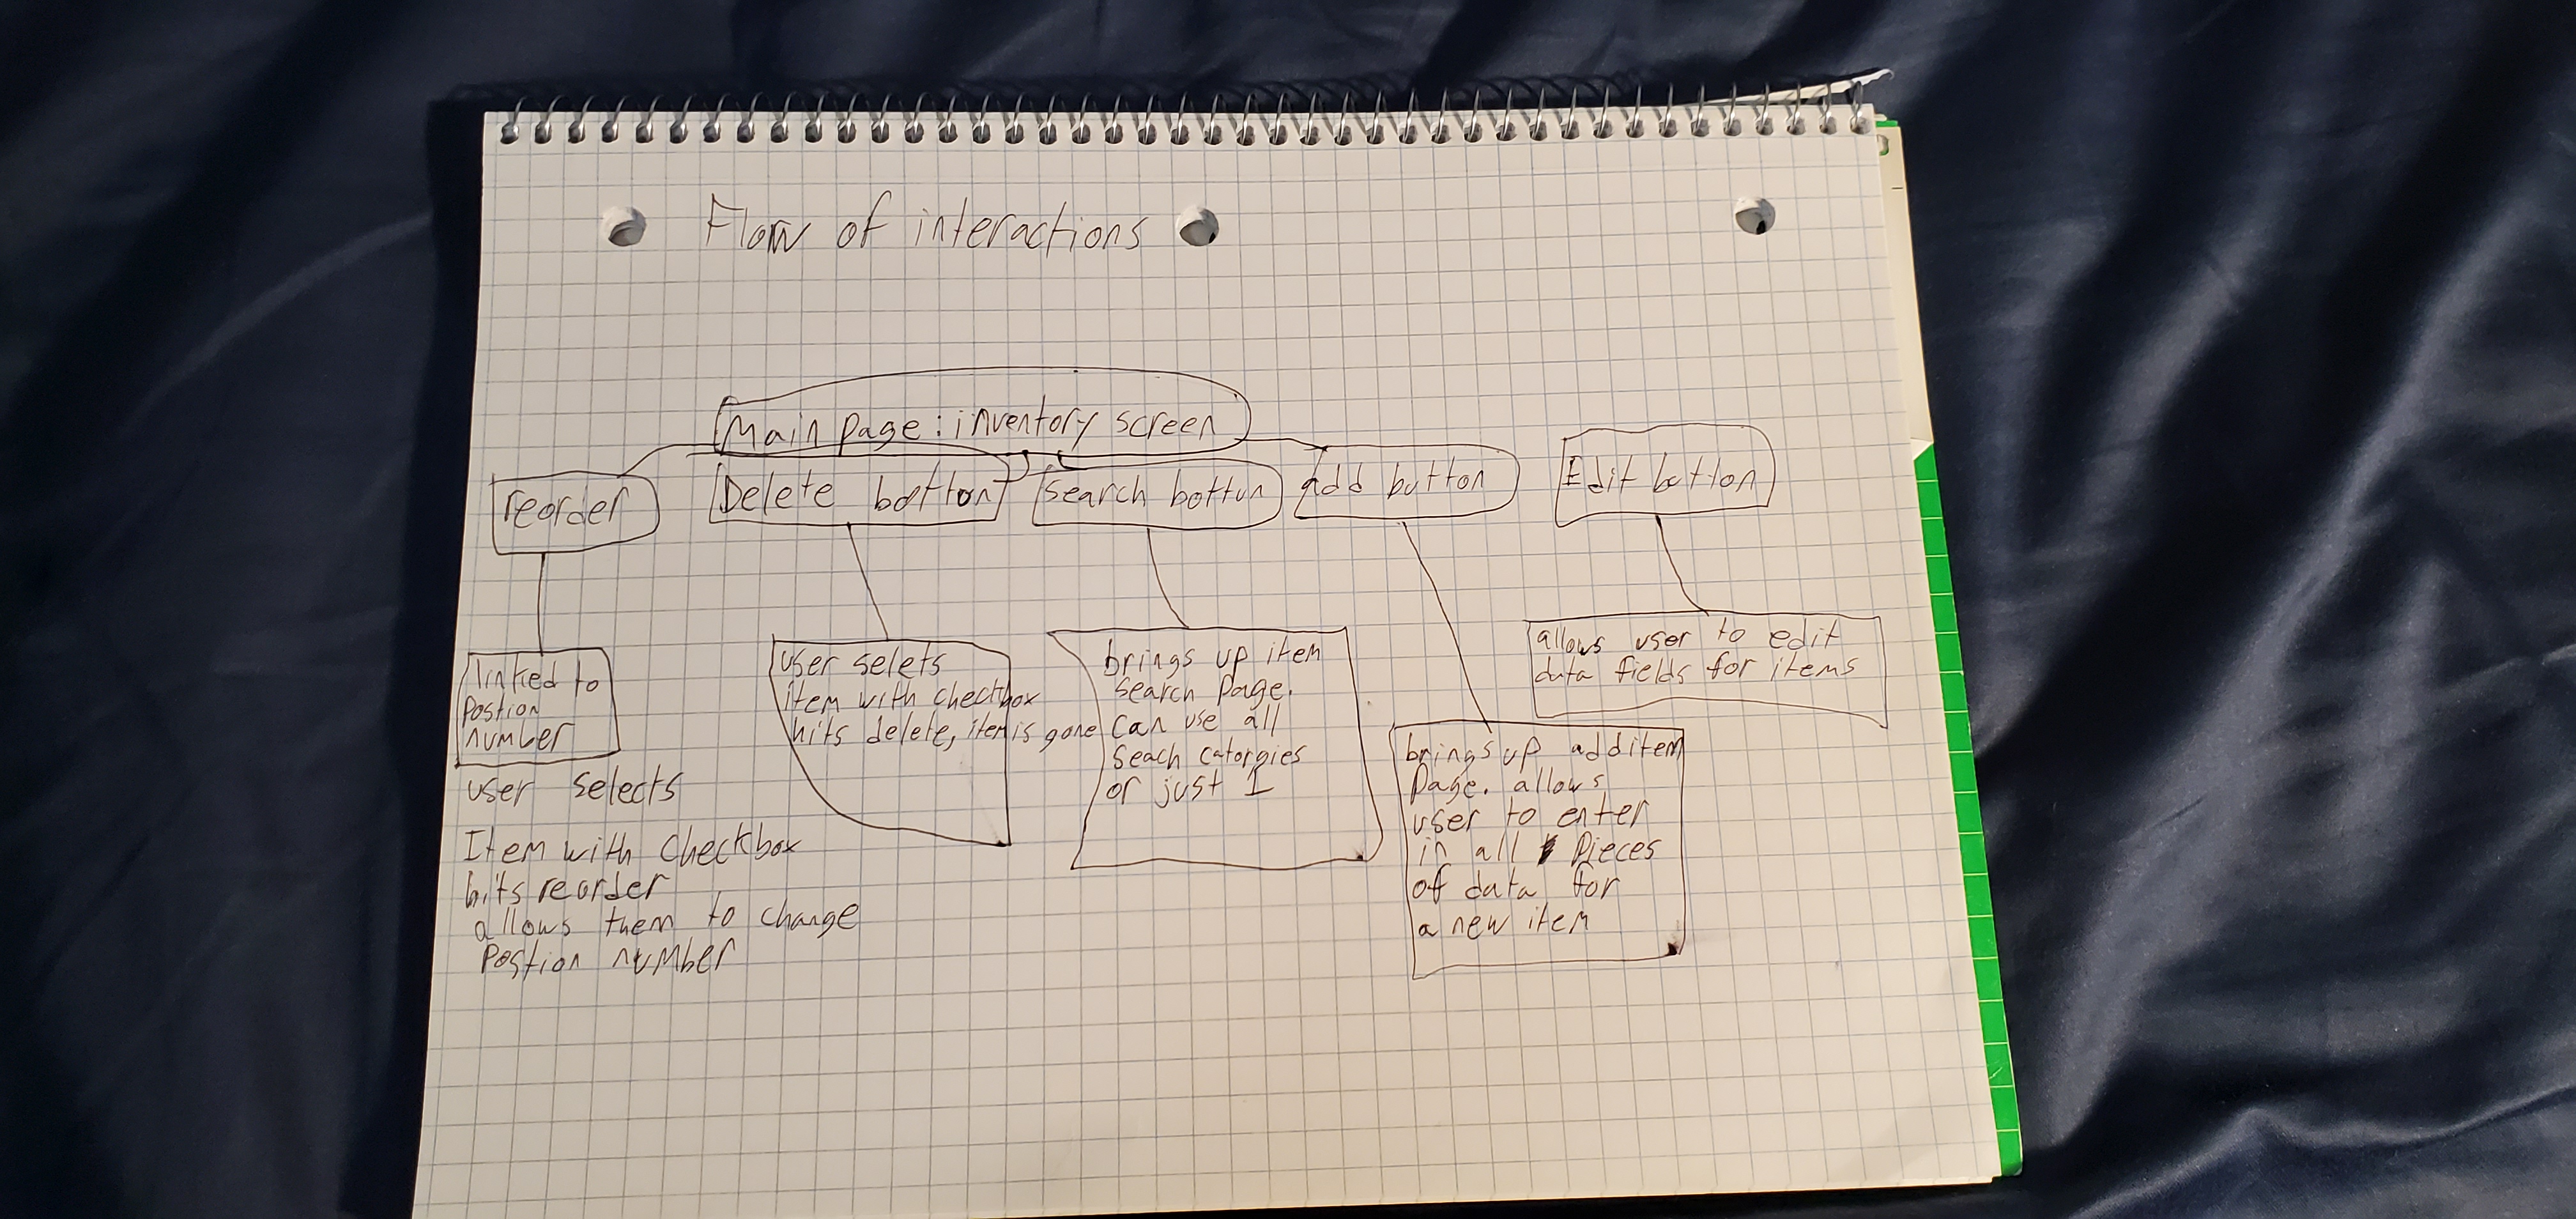 Flow of interactions
Main page: inventory screen
reorder
Delete botton
search botton
Add button
Edit button
linked to
Postion
number
user selects
Item with checkbox
hits reorder
allows them to change
Postion number
user selets
item with checkbox
hits delete, item is gone
brings up item
search page.
can use all
seach catorgies
or just 1
brings up add item
page. allows
user to enter
in all pieces
of data for
a new item
allows user to edit
data fields for items